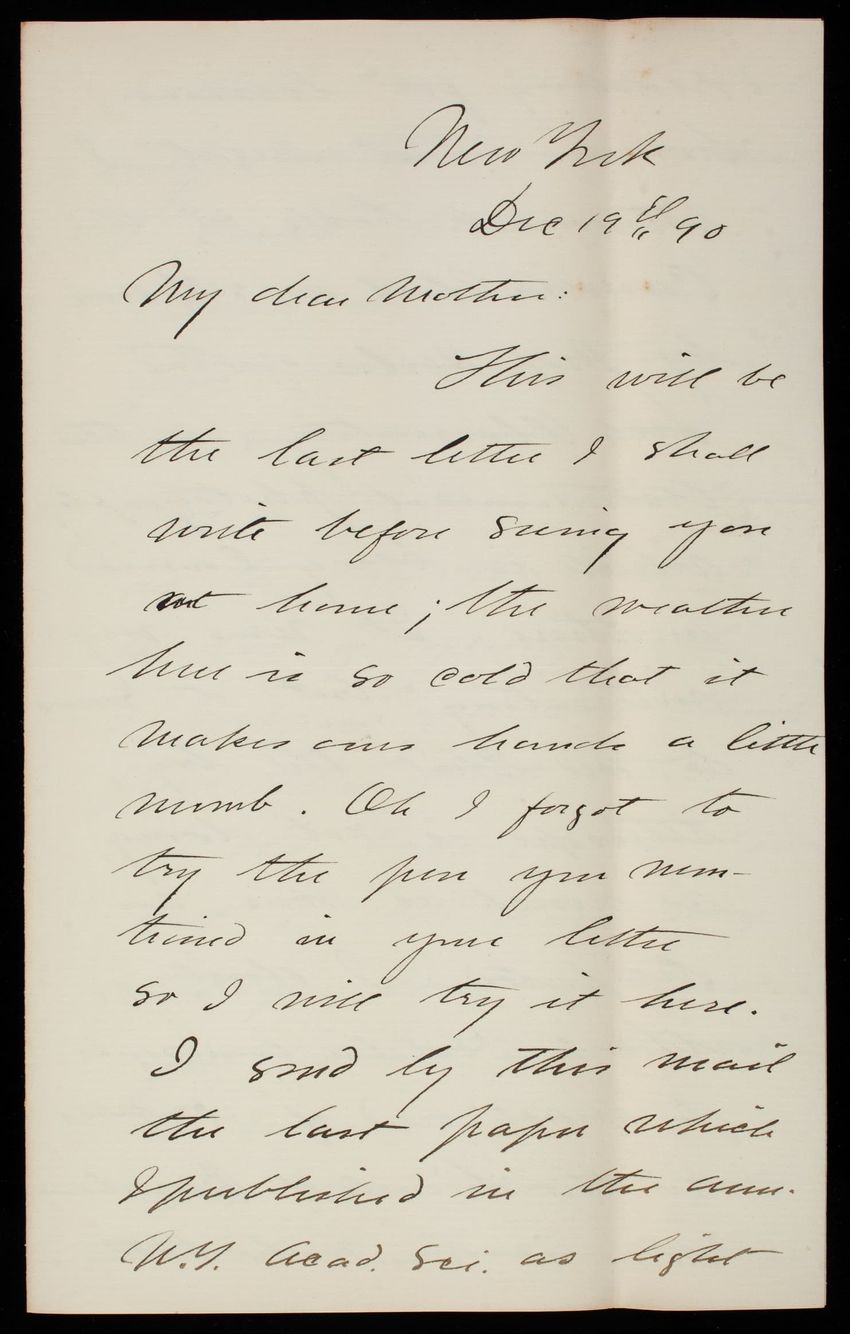 New York
Dec 19th 90
My dear Mother:
This will be
the last letter I shall
write before seeing you
at home; the weather
here is so cold that it
makes ones hands a little
numb. Oh I forgot to
try the pen you men-
tioned in your letter
so I will try it here.
I send by this mail
the last paper which
I published in the ann.
N.Y. Acad. Sci. as light